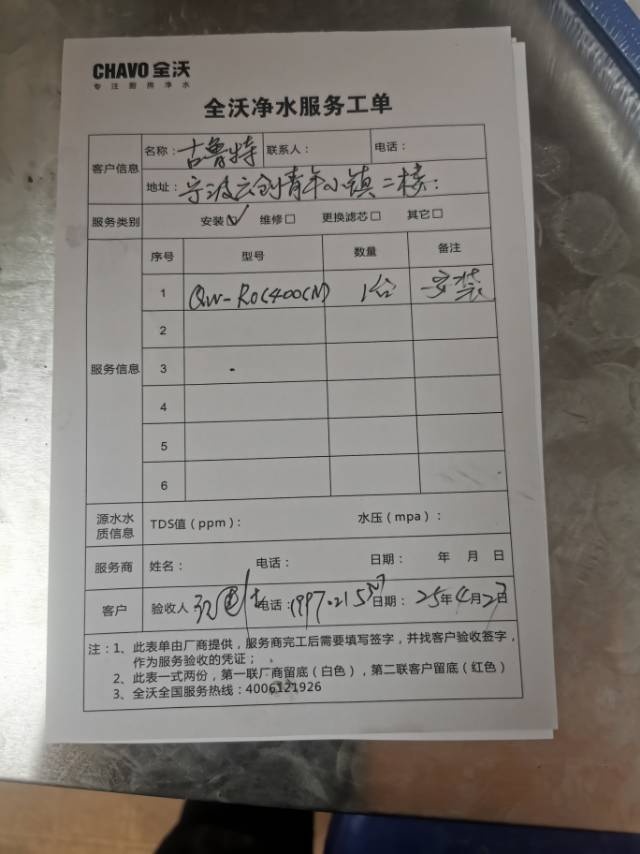 CHAVO 全沃
专注厨房净水
全沃净水服务工单
客户信息 名称：古鲁特 联系人： 电话：
地址：宁波云创青年小镇二楼：
服务类别 安装☑ 维修□ 更换滤芯□ 其它□
服务信息 序号 型号 数量 备注
1 QW-RO(400(N) 1台 安装
2
3
4
5
6
源水水质信息 TDS值（ppm）： 水压（mpa）：
服务商 姓名： 电话： 日期： 年 月 日
客户 验收人 电话： 日期：25年4月23日
注：1、此表单由厂商提供，服务商完工后需要填写签字，并找客户验收签字，
作为服务验收的凭证；
2、此表一式两份，第一联厂商留底（白色），第二联客户留底（红色）
3、全沃全国服务热线：4006121926